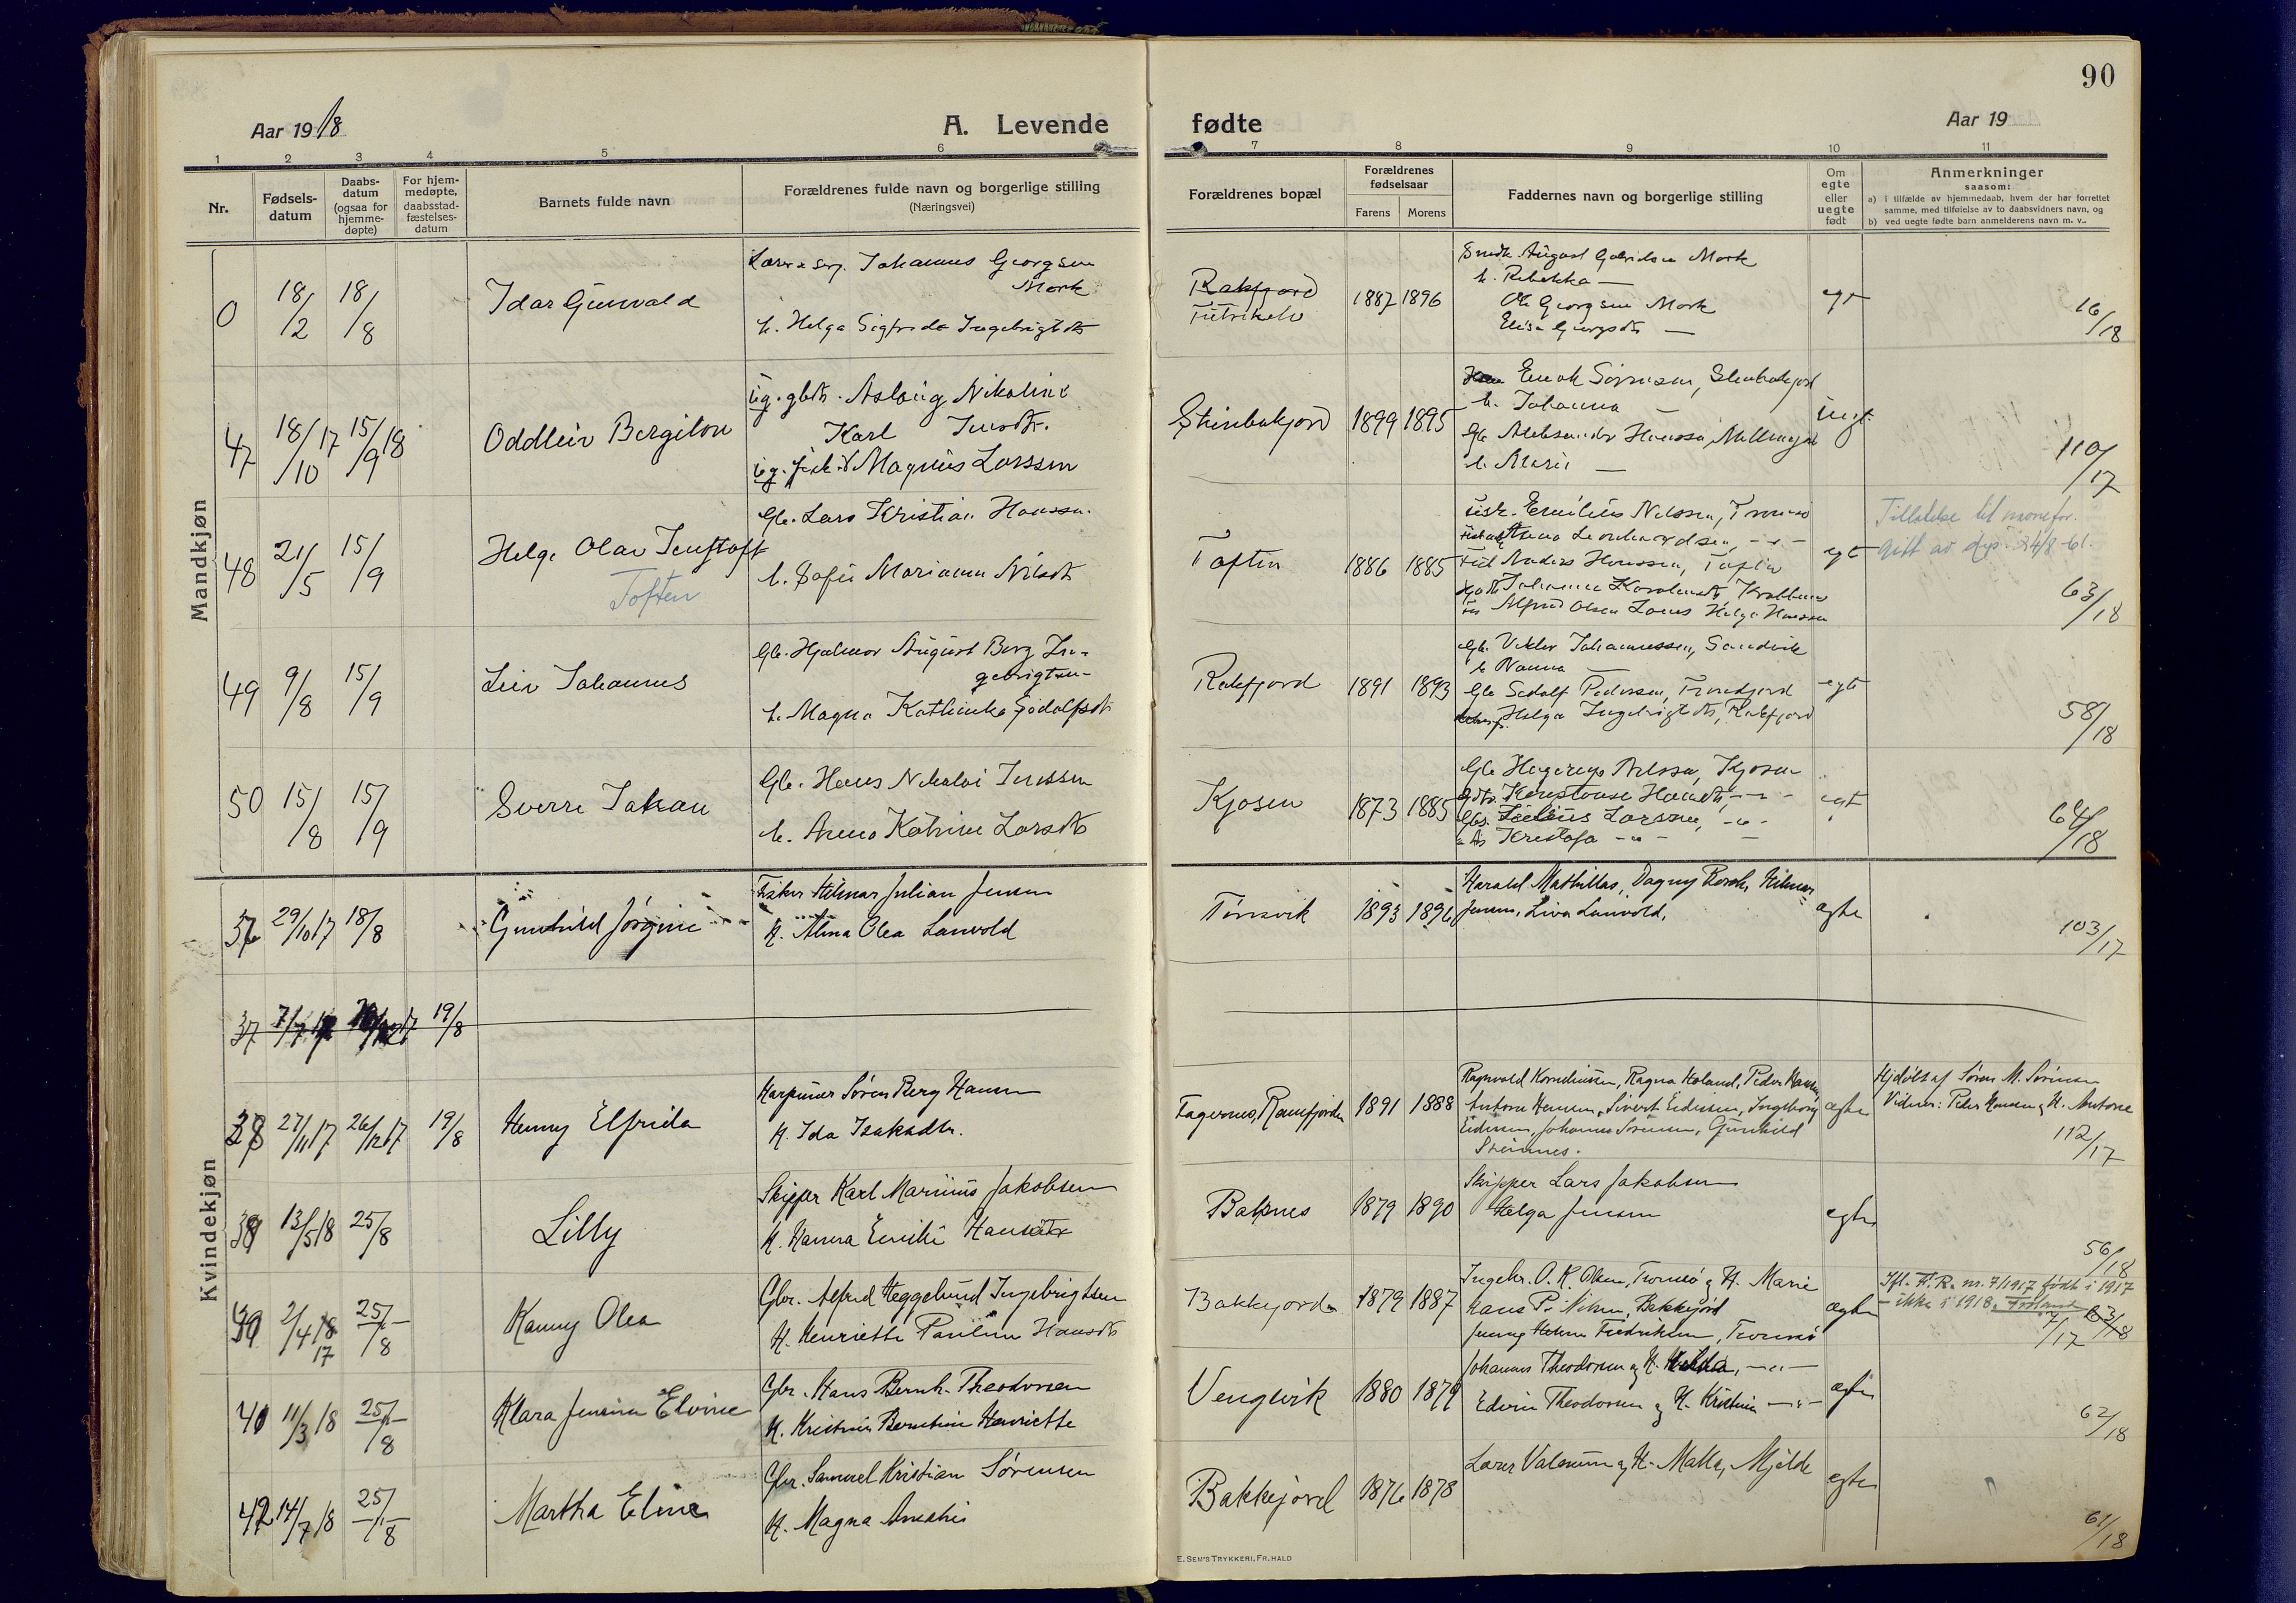 90
Aar 1918
A. Levende
fødte
Aar 19
1 2 3 4 5 6 7 8 9 10 11
Nr.
Fødsels-
datum
Daabs-
datum
(ogsaa for
hjemme-
døpte)
For hjem-
medøpte,
daabsstad-
fæstelses-
datum
Barnets fulde navn
Forældrenes fulde navn og borgerlige stilling
(Næringsvei)
Forældrenes bopæl
Forældrenes
fødselsaar
Farens Morens
Faddernes navn og borgerlige stilling
Om
egte
eller
uegte
født
Anmerkninger
saasom:
a) i tilfælde av hjemmedaab, hvem der har forrettet
samme, med tilføielse av to daabsvidners navn, og
b) ved uegte fødte barn anmelderens navn m. v..
Mandkjøn
0 18/2 18/8 Idar Gunvald
Johannes Georgsen
Mork
h. Helga Sigfrida Ingebrigtdtr
Rakfjord
1887 1896
August Gabrielsen Mork
h. Rebekka —
Ole Georgsen Mork
Elise Georgsdtr —
egt
16/18
47 18/10 17 15/9 18 Oddleiv Bergiton
Ug. gbdtr. Aslaug Nikoline
Karl Jensdtr.
Ug. fisk. Magnus Larssen
1899 1895
Enok Sørensen,
h. Johanna —
Gb Aleksander Hanssen,
h. Marie —
uegt.
110/17
48 21/5 15/9 Helge Olav Jentoft
Toften
Gb. Lars Kristian Hanssen.
h. Sofie Marianna Nilsdtr
Toften
1886 1885
Emilius Nilssen, Tromsø
Anna Leonhardsen, - " -
Anders Hanssen, Toften
Johanna
Alfred Olsen Helga Hanssen
egt
Tillatelse til navnefor.
gitt av dep. 24/8-61.
63/18
49 9/8 15/9 Leiv Johannes
Gb. Hjalmar August Berg In-
gebrigtsen
h. Magna Kathinka Sedolfsdtr
Rakfjord
1891 1893
Gb. Viktor Johannessen, Sandvik
h Nanna —
Gb Sedolf Pedersen,
Helga Ingebrigtsdtr, Rakfjord
egt
58/18
50 15/8 15/9 Sverre Johan
Gb. Hans Nikolai Jenssen
h. Anna Katrine Larsdtr
Kjosen
1873 1885
Gb Hagerup Nilssen, Kjosen
Larssen, - " -
Kristofa - " -
egt
64/18
Kvindekjøn
36 29/10 17 18/8 Gunhild Jørgine
Fisker Hilmar Julian Jensen
H. Alma Olea Lanvold
Tønsvik
1893 1896
Harald Mathillas, Dagny Hilmar
Jensen, Liva Lanvold.
ægte
103/17
37 19/8
38 27/11 17 26/12 17 19/8 Henny Elfrida
Harpuner Søren Berg Hansen
H. Ida Isaksdtr.
Fagernes, Ramfjorden
1891 1888
Ragnvald Korneliussen, Ragna Holand, Peder Hansen,
Antone Hansen, Sivert Eidissen, Ingeborg
Eidissen, Johannes Sørensen, Gunhild
Steinnes.
ægte
Hjdøbt af Søren M. Sørensen
Vidner: Peder Hansen og H. Antone
112/17
39 13/5 18 25/8 Lilly
Skipper Karl Marinius Jakobsen
H. Hanna Emilie Hansdtr
Baknes
1879 1890
Skipper Lars Jakobsen
Helga Jensen
egte
56/18
2/4 18 17 25/8 Kanny Olea
Gbr. Alfred Heggelund Ingebrigtsen
H. Henriette Pauline Hansdtr
Bakkejorden
1879 1887
Ingebr. O. K. Olsen, Tromsø og H. Marie
Hans P. Bakkejord
Jenny Helene Fredriksen, Tromsø
ægte
Ifl. F. R. nr. 7/1917 født i 1917
- ikke i 1918.
7/17
41 11/3 18 25/8 Klara Jensine Elvine
Gbr. Hans Bernh. Theodorsen
H. Kristine Berntine Henriette
Vengsvik
1880 1879
Johannes Theodorsen og H. Hilda, - " -
Edvin Theodorsen og H. Kristine - " -
ægte
62/18
42 14/7 18 25/8 Martha Eline
Gbr. Samuel Kristian Sørensen
H. Magna Amalie
Bakkejord
1876 1878
Lærer Valenin og H. Malla, Mjelde
egte
61/18
E. SEM'S TRYKKERI, FR.HALD